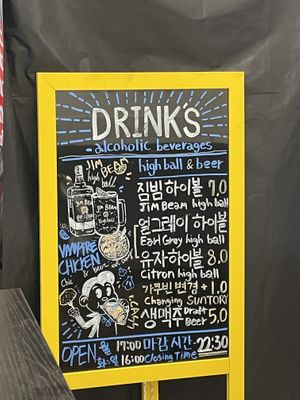 DRINK'S
alcoholic beverages
high ball & beer
JIM BEAM
high ball
짐빔하이볼 7.0
Jim Beam high ball
얼그레이 하이볼
Earl Grey high ball
유자하이볼 8.0
Citron high ball
가쿠빈 변경 + 1.0
Changing SUNTORY
생맥주 Draft Beer 5.0
VAMPIRE
CHICKEN
OPEN 월 17:00 마감시간 22:30
화-일 16:00 Closing Time